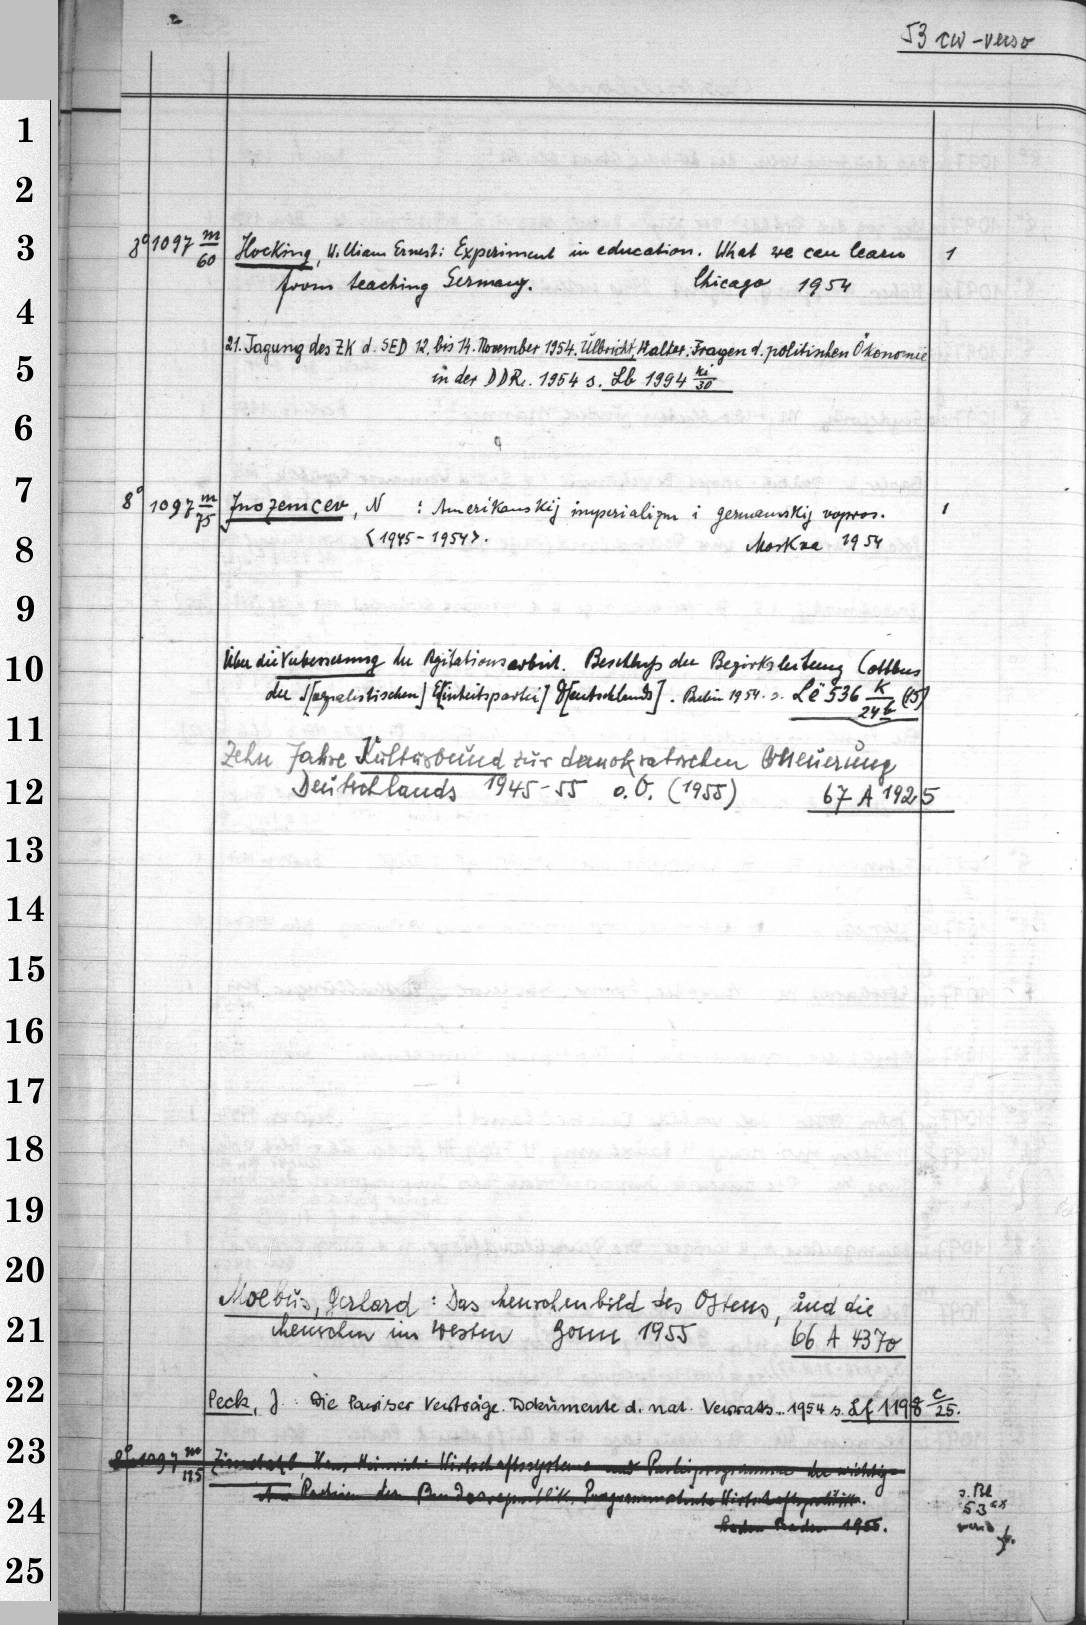 53 cw-verso
1
2
3 8° 1097 m/60 Hocking, William Ernest: Experiment in education. What we can learn 1
from teaching Germany. Chicago 1954
4
21. Tagung des ZK d. SED 12. bis 14. November 1954. Ulbricht, Walter: Fragen d. politischen Ökonomie
5 in der DDR. 1954 s. Lb 1994 ki/30
6
7 8° 1097 m/75 Inozemcev, N : Amerikanskij imperializm i germanskij vopros. 1
8 <1945-1954>. Moskva 1954
9
10 Über die Verbesserung der Agitationsarbeit. Beschluß der Bezirksleitung Cottbus
der S[ozialistischen] E[inheitspartei] D[eutschlands]. Berlin 1954. s. Lë 536 k/24b (15)
11
Zehn Jahre Kulturbund zur demokratischen Erneuerung
12 Deutschlands 1945-55 o.O. (1955) 67 A 1925
13
14
15
16
17
18
19
20
Moebus, Gerhard: Das Menschenbild des Ostens, und die
21 Menschen im Westen Bonn 1955 66 A 4370
22 Peck, J.: Die Pariser Verträge. Dokumente d. nat. Verrats. 1954 s. Lf 1198 c/25.
23 8° 1097 m/115 Hans Heinrich: Wirtschaftssysteme und Parteiprogramme der wichtig-
sten Parteien der Bundesrepublik. Wirtschaftspolitik.
24 s. Bl 53 cx verso
Baden-Baden 1955.
25